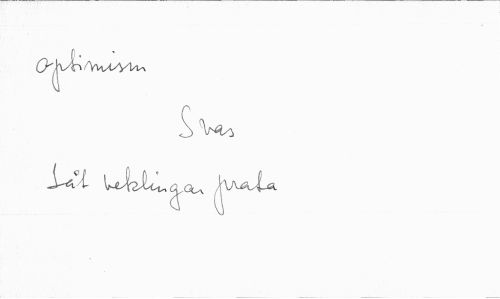 optimism
Svas
Låt veklingar prata